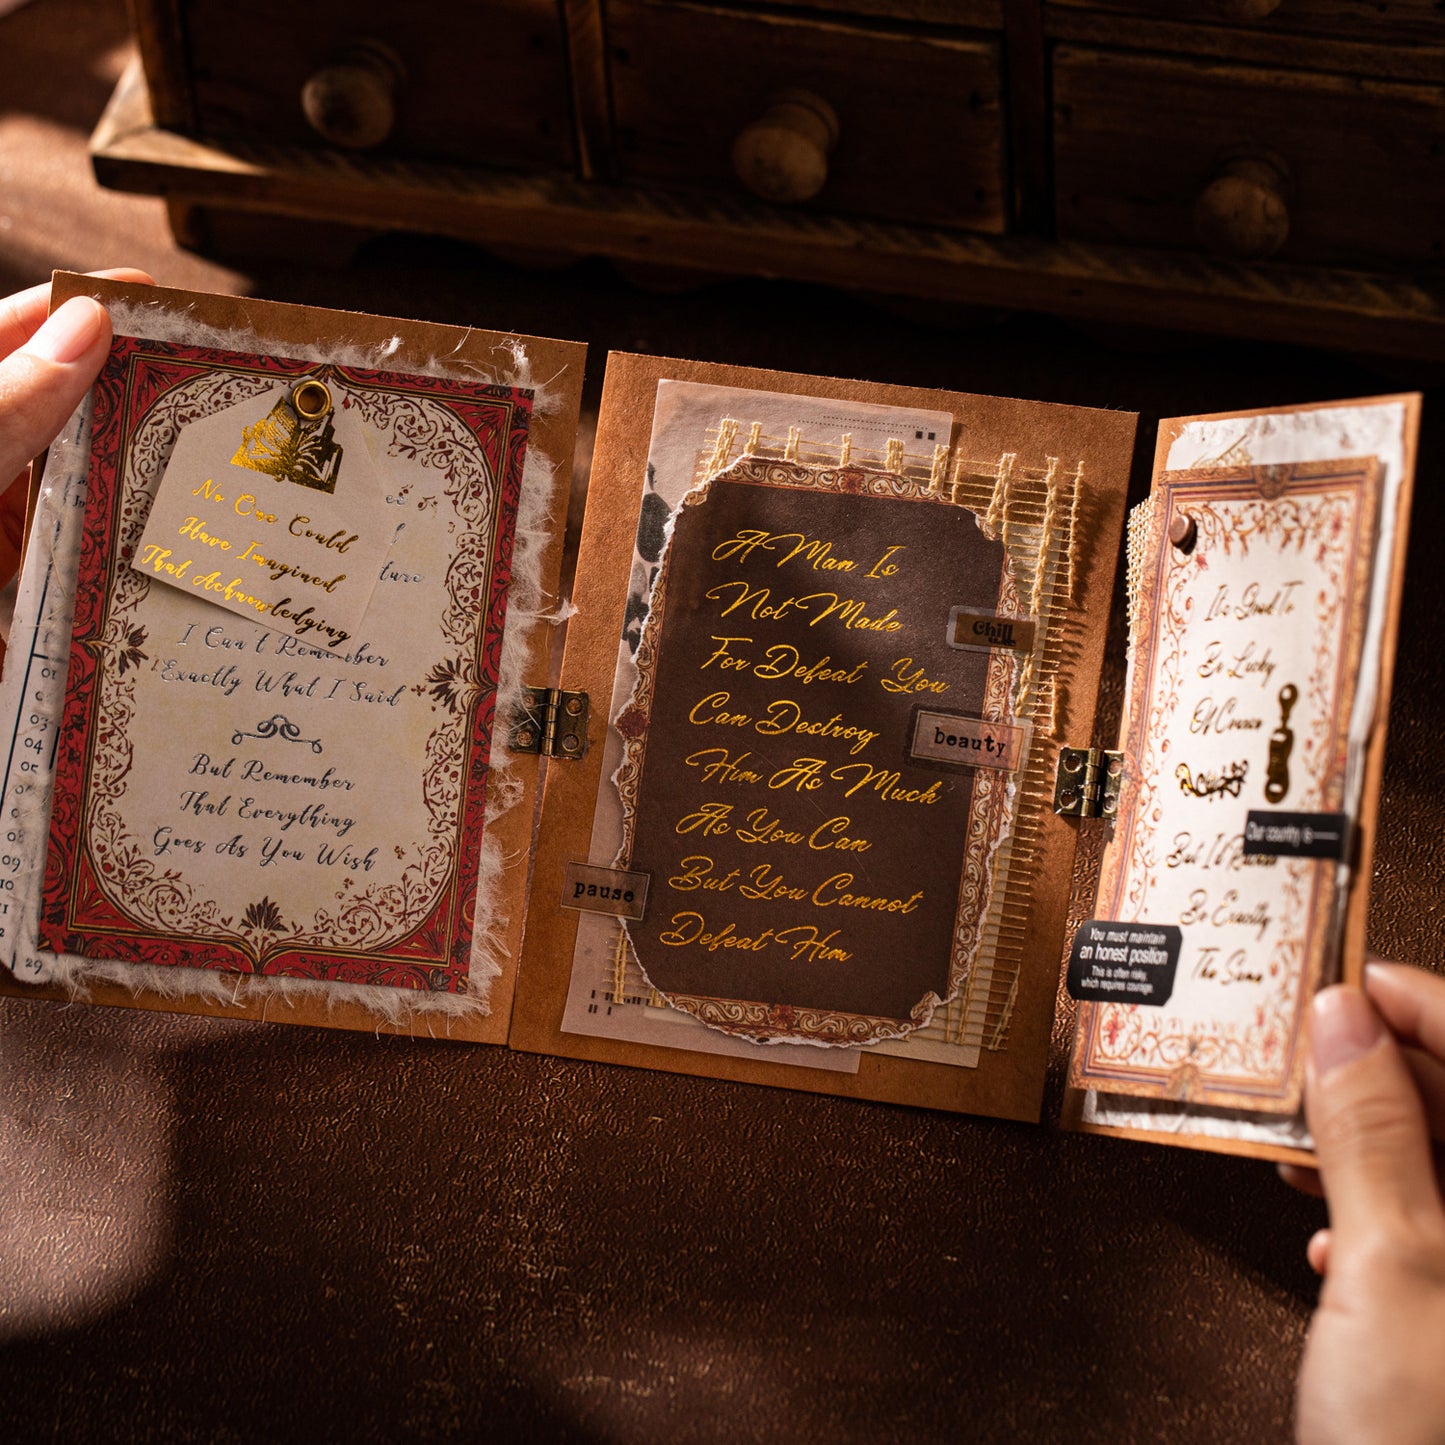 No One Could
Have Imagined
That Acknowledging
ture
I Can't Remember
Exactly What I Said
But Remember
That Everything
Goes As You Wish
03
04
05
08
09
10
11
12
29
A Man Is
Not Made
For Defeat You
Can Destroy
Him As Much
As You Can
But You Cannot
Defeat Him
Chill
beauty
pause
It's Good To
Be Lucky
Of Course
But I'd Rather
Be Exactly
The Same
Our country is
You must maintain
an honest position
This is often risky,
which requires courage.